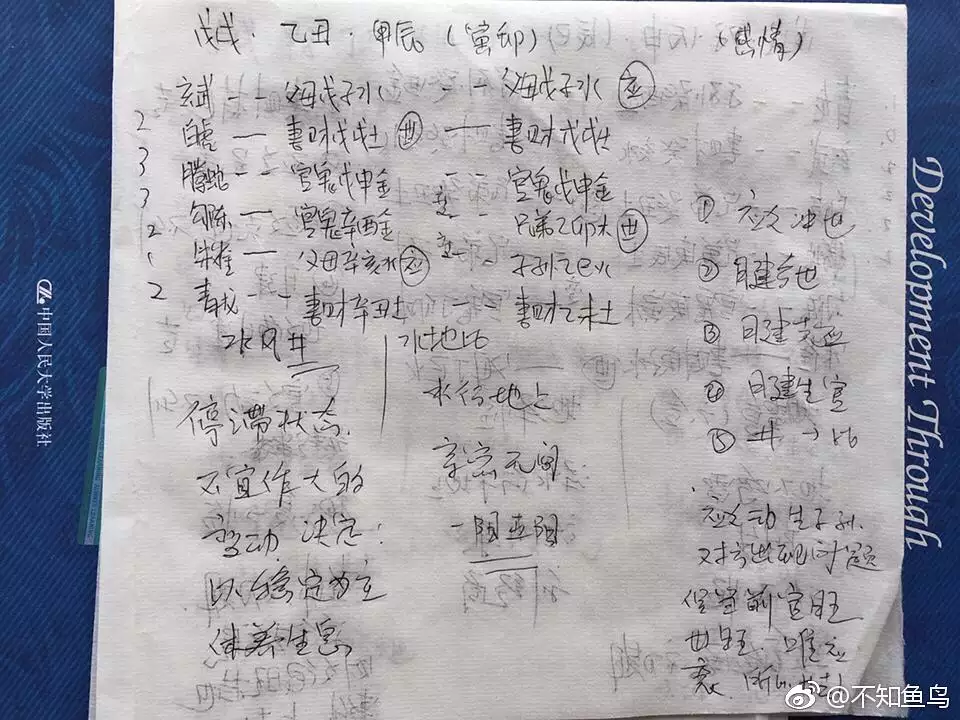 戊戌·乙丑·甲辰(寅卯)(感情)
玄武 -- 父母戊子水 -- 父母戊子水 应
2 白虎 — 妻财戊戌土 世 — 妻财戊戌土
3 腾蛇 -- 官鬼戊申金 -- 官鬼戊申金
3 勾陈 — 官鬼辛酉金 -- 兄弟乙卯木 世
2 朱雀 — 父母辛亥水 应 -- 子孙乙巳火
2 青龙 -- 妻财辛丑土 妻财乙未土
① 应爻冲世
② 日建合世
③ 日建克应
④ 日建生官
⑤ 井→比
应爻动生子孙.
对方出现问题
但当前官旺
世旺.唯应
衰.
水风井
停滞状态.
不宜作大的
变动 决定:
以稳定为主
休养生息
水地比
水行地上
亲密无间
一阳五阴
中国人民大学出版社
Development Through
@不知鱼鸟